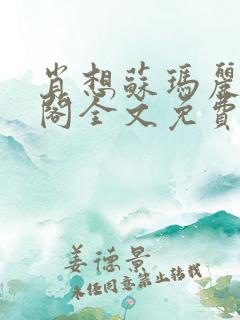 肖想蘇瑪麗
閣全文免費
姜德景
未经同意禁止转载